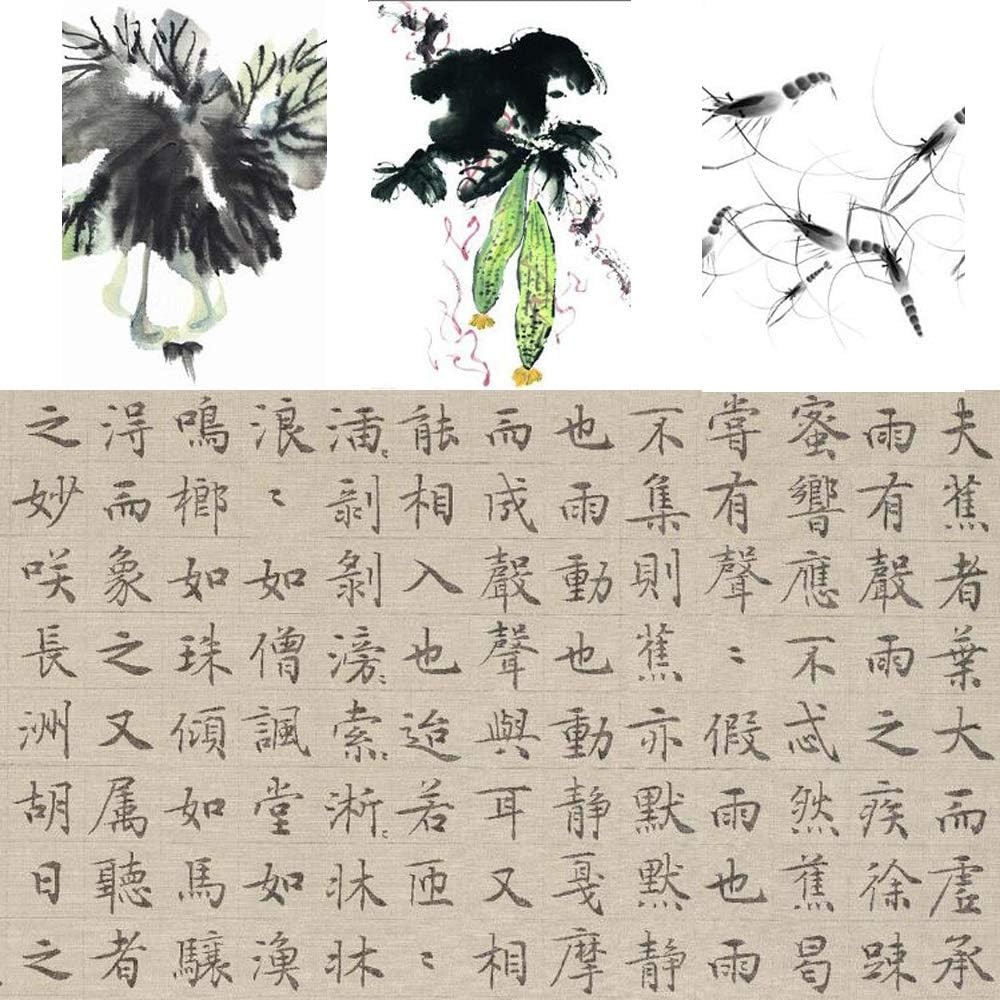 夫蕉者葉大而虛承
雨有聲雨之疾徐踈
蜜響應不忒然蕉曷
嘗有聲〻假雨也雨
不集則蕉亦默默静
也雨動也動静戛摩
而成聲聲與耳又相
能相入也迨若匝〻
湱〻剝剝滂〻索〻淅〻牀牀
浪〻如僧諷堂如漁
鳴榔如珠傾如馬驤
得而象之又属聽者
之妙咲長洲胡日之